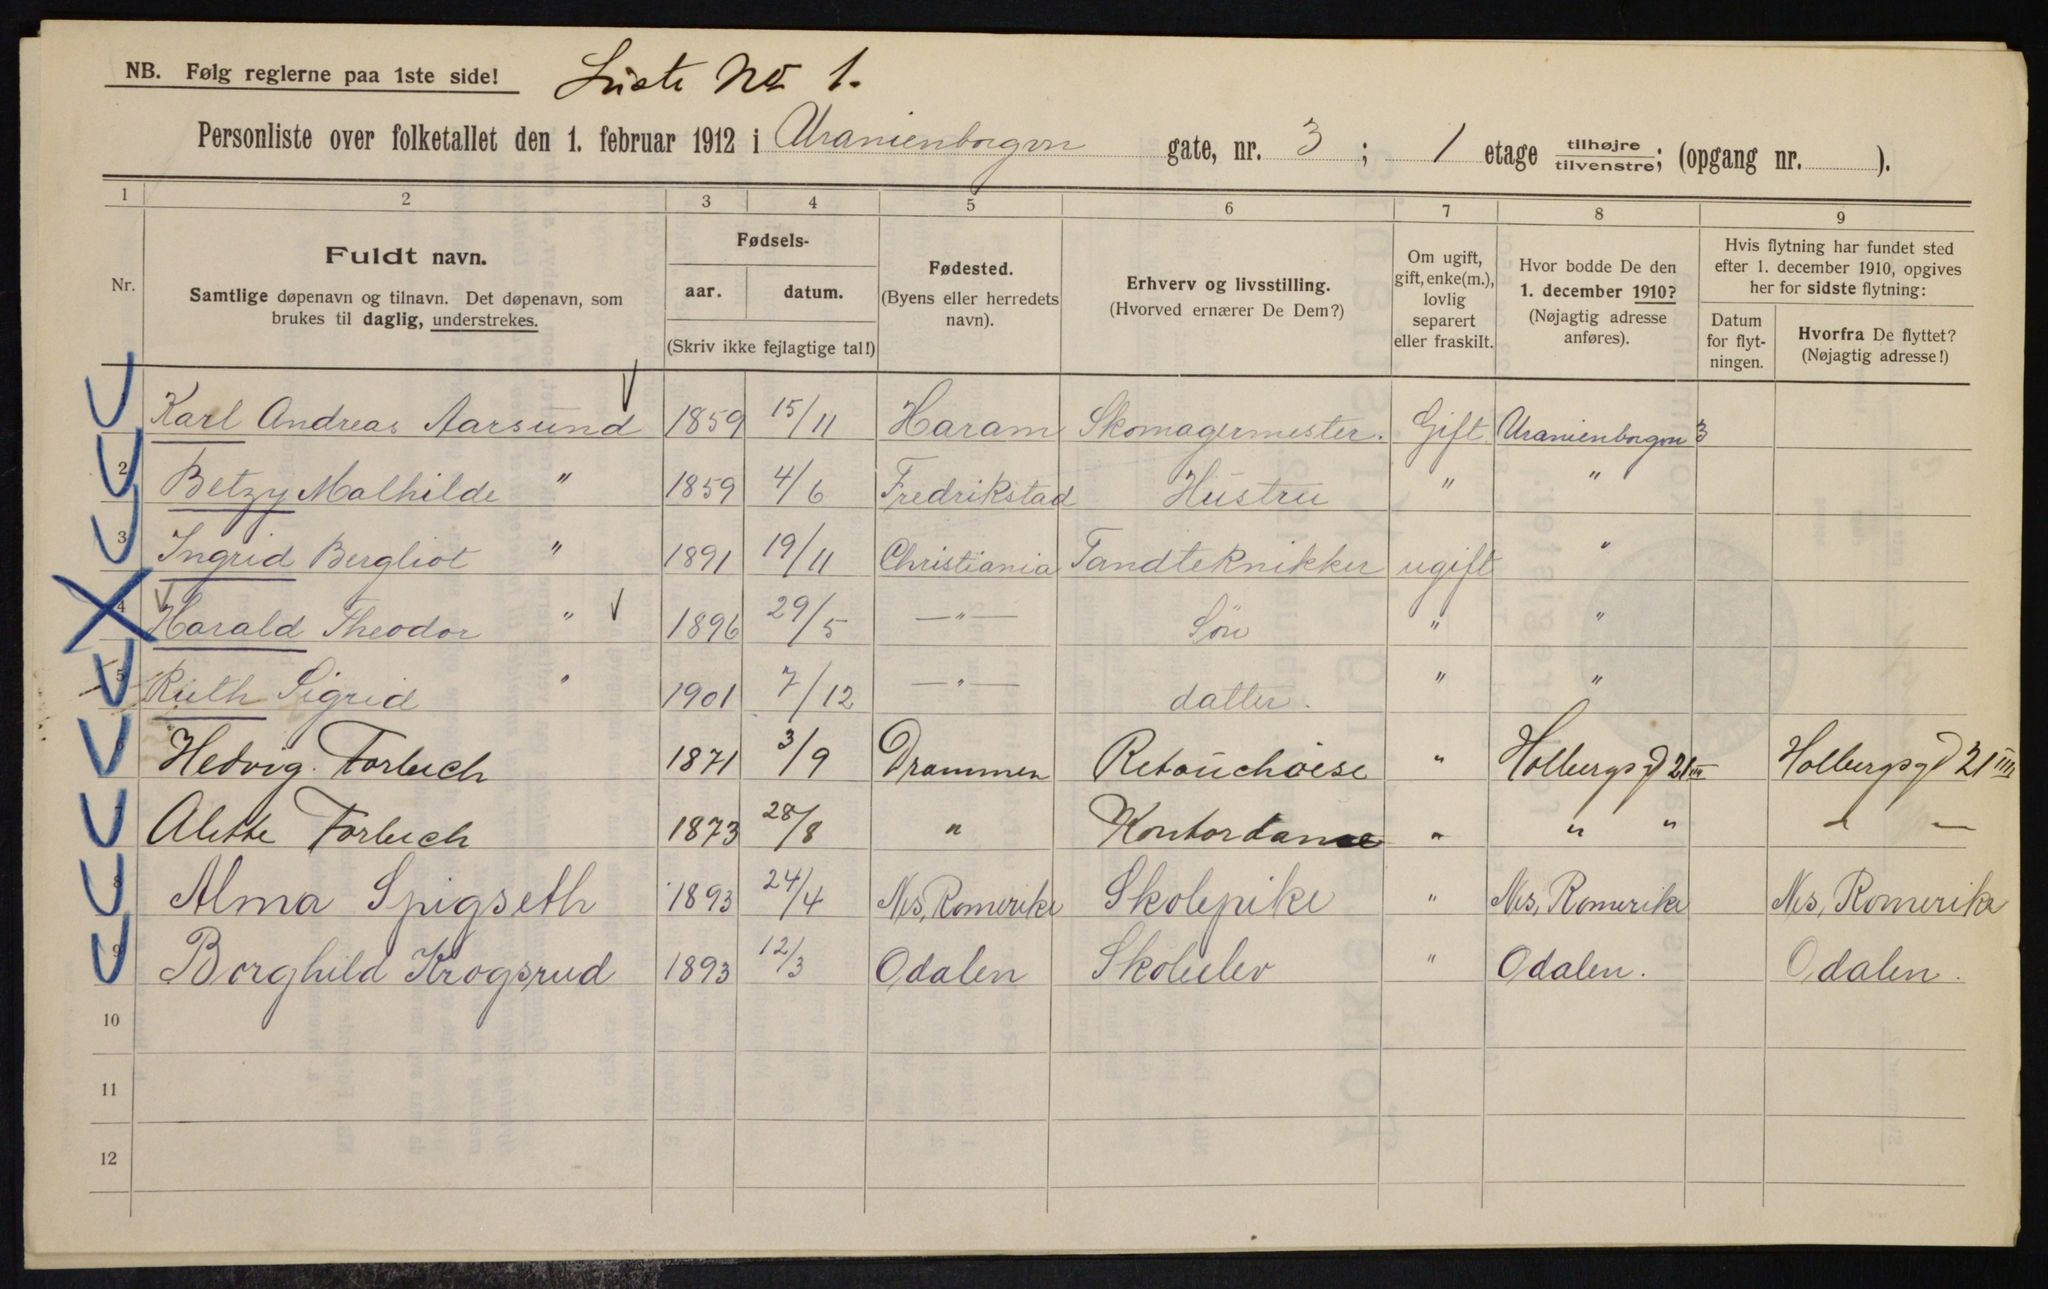 NB. Følg reglerne paa 1ste side!
Liste No 1.
Personliste over folketallet den 1. februar 1912 i Uranienborgvn gate, nr. 3; 1 etage tilhøjre/tilvenstre; (opgang nr. ).
1 2 3 4 5 6 7 8 9
Nr.
Fuldt navn.
Samtlige døpenavn og tilnavn. Det døpenavn, som
brukes til daglig, understrekes.
Fødsels-
aar. datum.
(Skriv ikke fejlagtige tal!)
Fødested.
(Byens eller herredets
navn).
Erhverv og livsstilling.
(Hvorved ernærer De Dem?)
Om ugift,
gift, enke(m.),
lovlig
separert
eller fraskilt.
Hvor bodde De den
1. december 1910?
(Nøjagtig adresse
anføres).
Hvis flytning har fundet sted
efter 1. december 1910, opgives
her for sidste flytning:
Datum
for flyt-
ningen.
Hvorfra De flyttet?
(Nøjagtig adresse!)
Karl Andreas Aarsund 1859 15/11 Haram Skomagermester. Gift Uranienborgvn 3
2 Betzy Mathilde " 1859 4/6 Fredrikstad Hustru " "
3 Ingrid Bergliot " 1891 19/11 Christiania Tandteknikker ugift "
4 Harald Theodor " 1896 29/5 —"— Søn " "
5 Ruth Sigrid " 1901 7/12 —"— datter. " "
6 Hedvig Forbech 1871 3/9 Drammen Retouchøese " Holbergsgd 21 III Holbergsgd 21 III
7 Alette Forbech 1873 28/8 " Kontordame " " " " —
8 Alma Spigseth 1893 24/4 Nes, Romerike Skolepike " Nes, Romerike Nes, Romerike
9 Borghild Krogsrud 1893 12/3 Odalen Skoleelev " Odalen. Odalen.
10
11
12